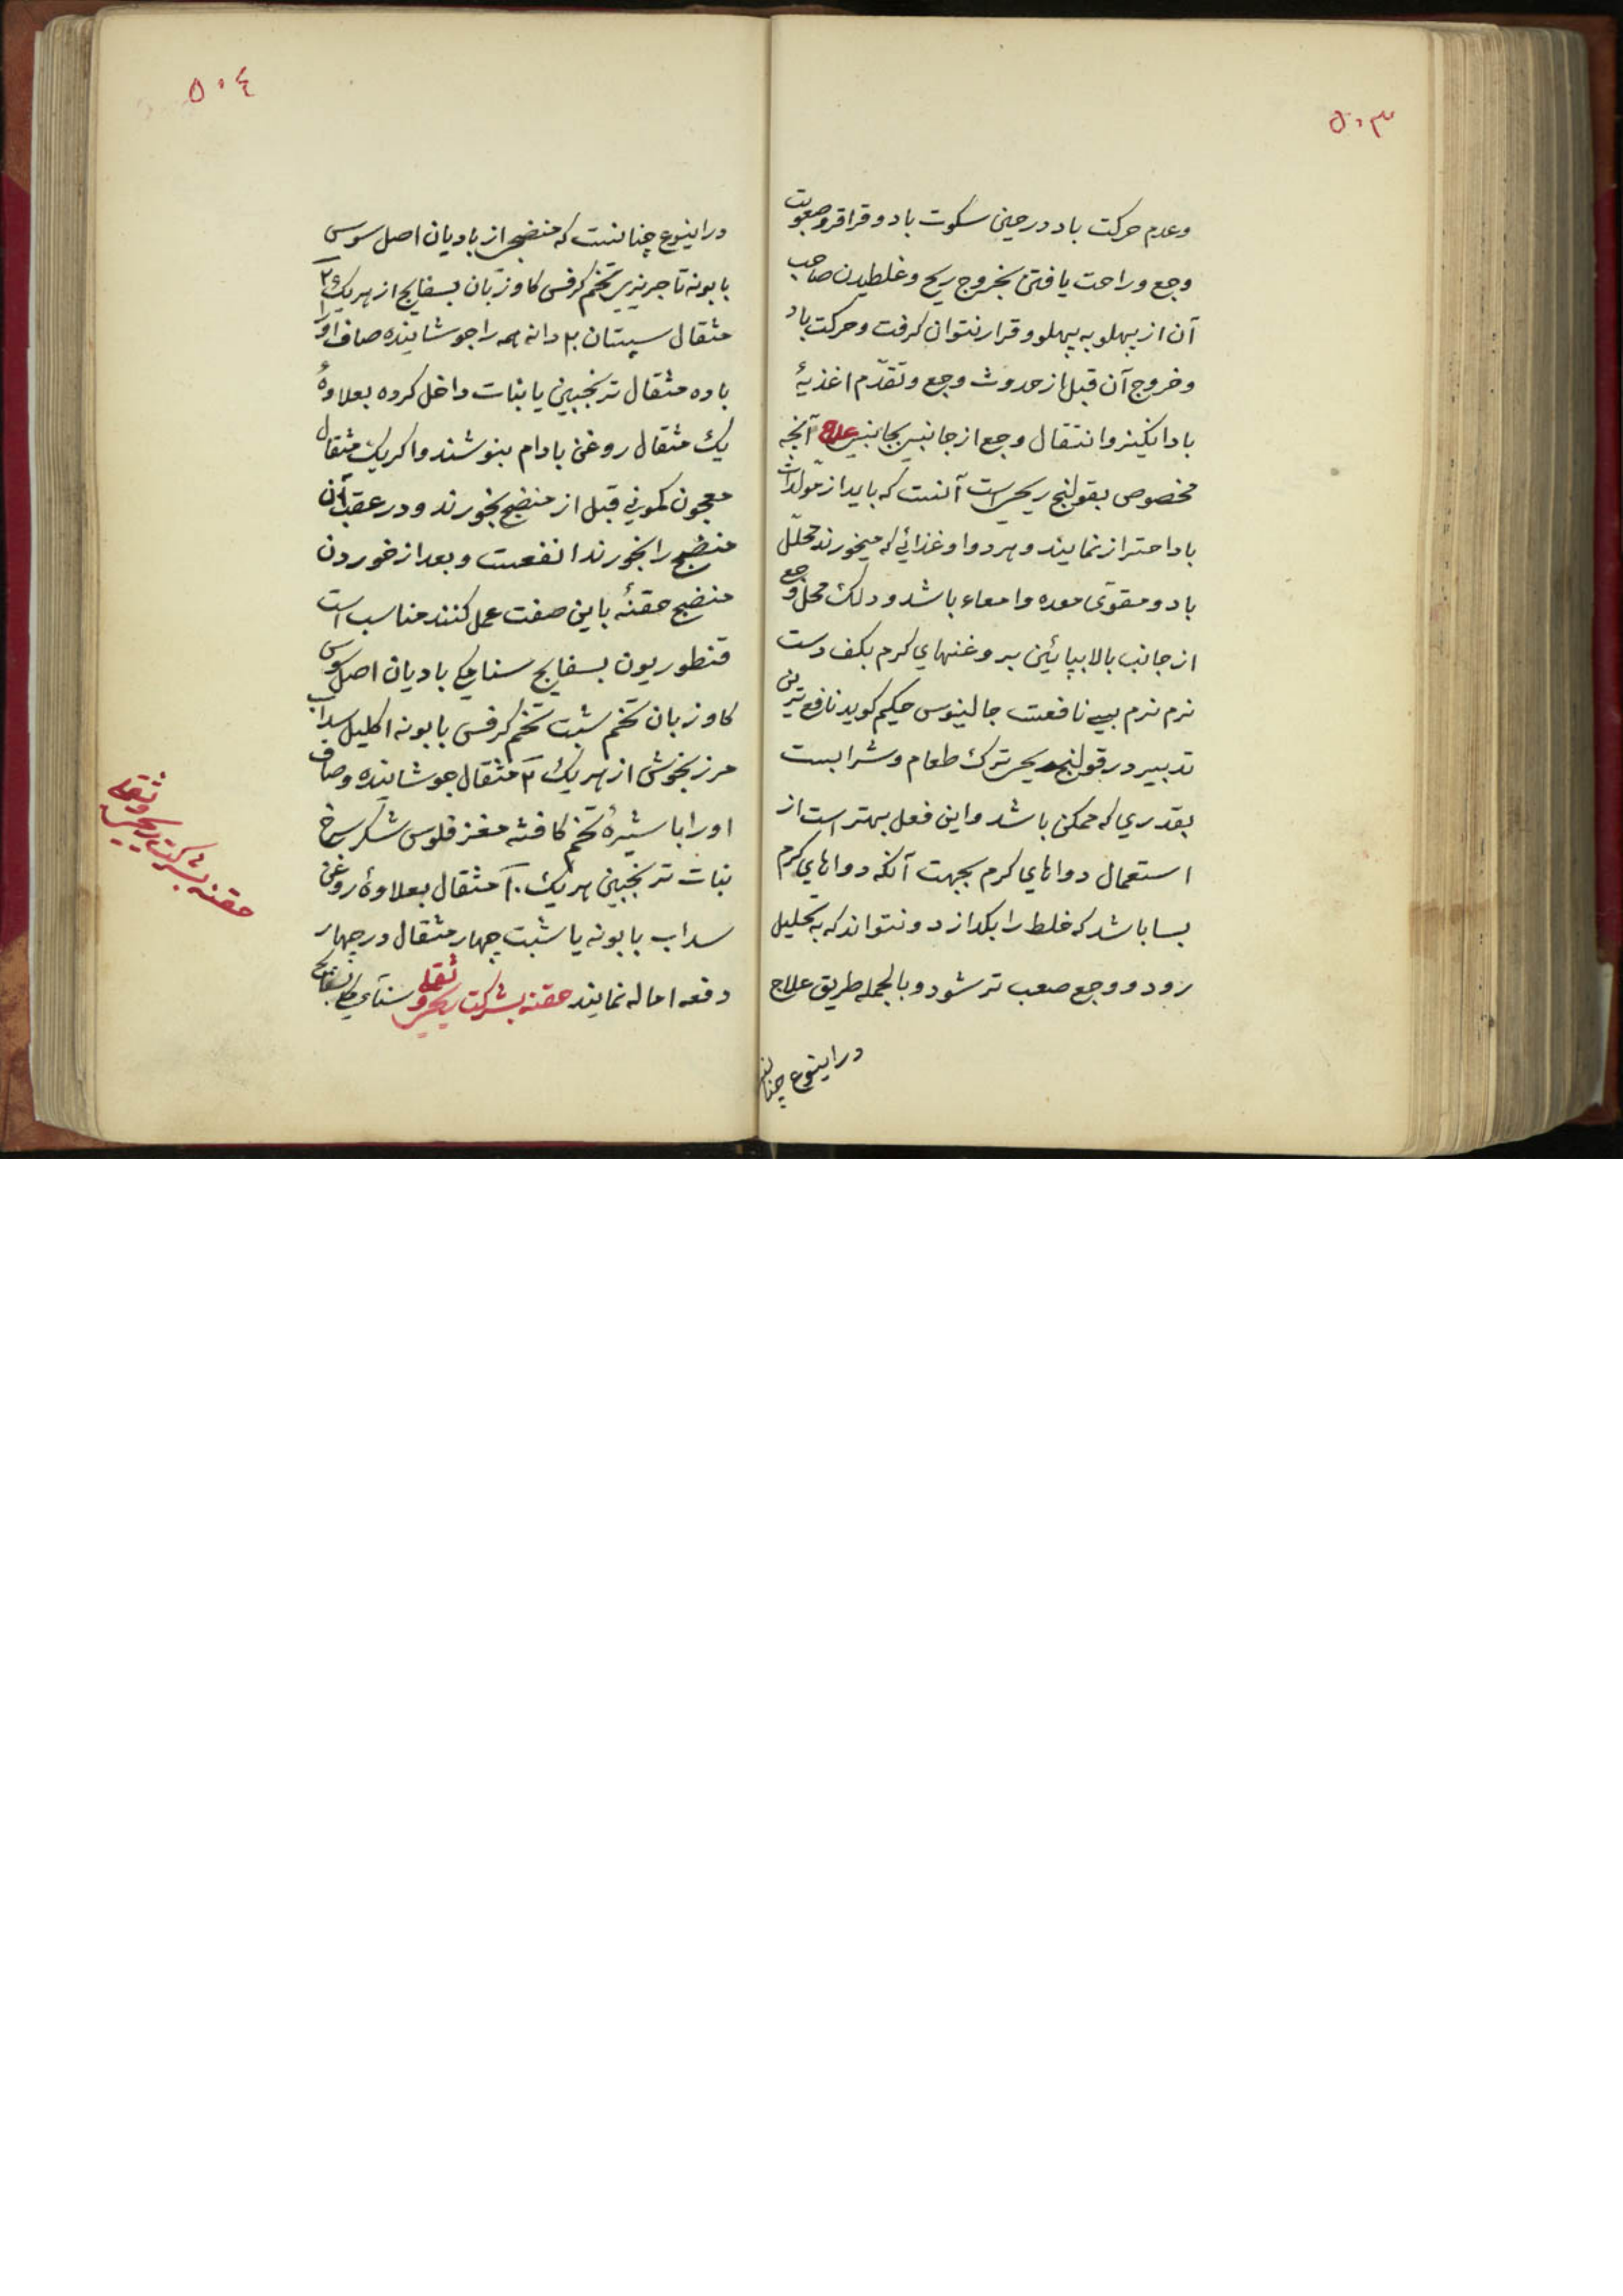 ۵۰۳
وعدم حرکت باد در حین سکوت باد و قراقر و صعوبت
وجع و راحت یافتن بخروج ریح و غلطیدن صاحب
آن از پهلو به پهلو و قرار نتوان کرفت و حرکت باد
و خروج آن قبل از حدوث وجع و تقدّم اغذیهٔ
باد انکیز و انتقال وجع از جانبی بجانبی علاج آنچه
مخصوص بقولنج ریحی است آنست که باید از مولدات
باد احتراز نمایند و هر دوا و غذائی که میخورند محلّل
باد و مقوّی معده و امعاء باشد و دلک محل وجع
از جانب بالا بپائین بروغنهای کرم بکف دست
نرم نرم بسی نافعست جالینوس حکیم کوید نافع ترین
تدبیر در قولنج ریحی ترک طعام و شرابست
بقدری که ممکن باشد و این فعل بهتر است از
استعمال دواهای کرم بجهت آنکه دواهای کرم
بسا باشد که خلط را بکدازد و نتواند که به تحلیل
رود و وجع صعب تر شود و بالجمله طریق علاج
در اینوع چنانست
۵۰٤
در اینوع چنانست که منضجی از بادیان اصل سوس
بابونه تاجریزی تخم کرفس کاوزبان بسفایج از هریک
مثقال سپستان دانه همه را جوشانیده صاف او را
با ده مثقال ترنجبین یا نبات داخل کرده بعلاوهٔ
یک مثقال روغن بادام بنوشند و اکر یک مثقال
معجون کمونی قبل از منضج بخورند و در عقب آن
منضج را بخورند انفعست و بعد از خوردن
منضج حقنهٔ باین صفت عمل کنند مناسب است
قنطوریون بسفایج سنای مکی بادیان اصل سوس
کاوزبان تخم شبت تخم کرفس بابونه اکلیل سداب
مرزنجوش از هریک ۲ مثقال جوشانیده و صاف
او را با شیرهٔ تخم کافشه مغز فلوس شکر سرخ
نبات ترنجبین هریک ۱۰ مثقال بعلاوهٔ روغن
سداب بابونه یا شبت چهار مثقال در چهار
دفعه اماله نمایند حقنه بشرکت ریحی و ثفلی سنای مکی بسفایج
حقنه بشرکت ریحی و ثفلی